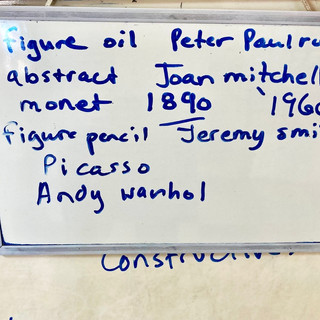 figure oil Peter Paul ru
abstract Joan mitchell
monet 1890 '1960
figure pencil Jeremy smi
Picasso
Andy warhol